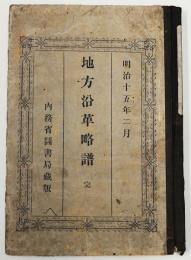 明治十五年二月
地方沿革略譜 完
内務省圖書局藏版